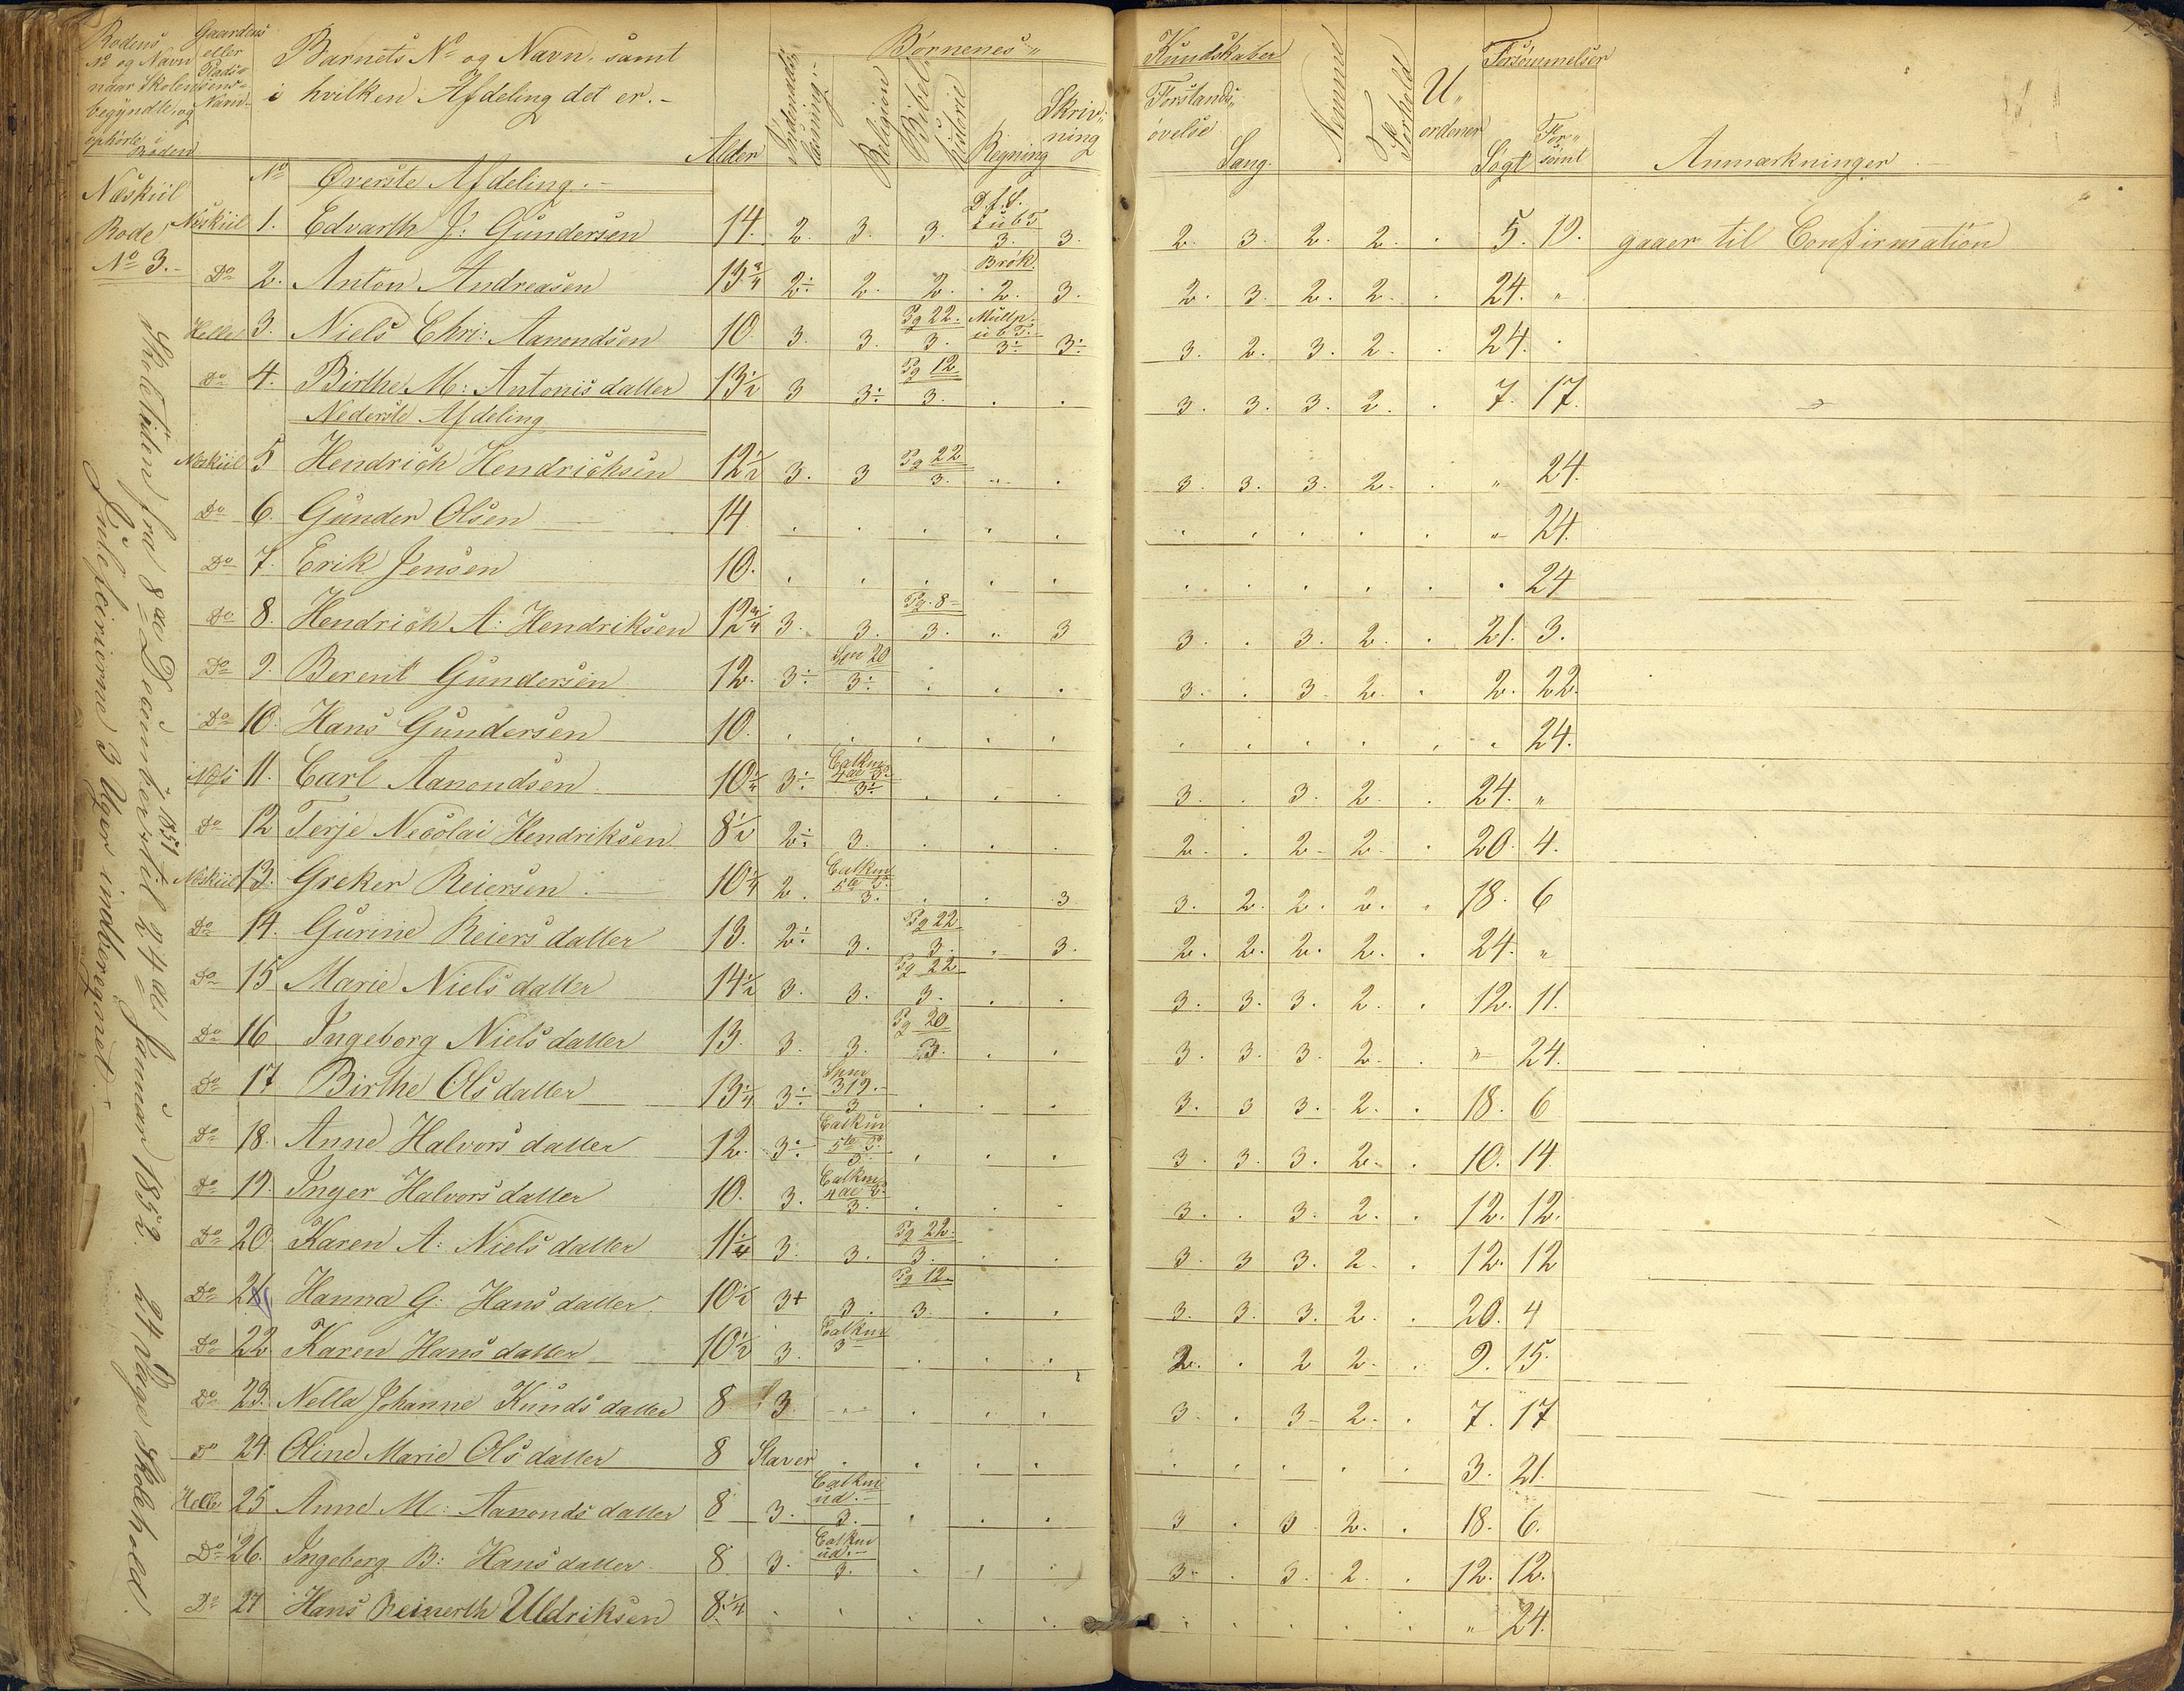 Rodens Nº og Navn naar Skolen begyndte, og ophørte i Roden
Gaardens eller Pladsens Navn
Barnets Nº og Navn, samt
i hvilken Afdeling det er.-
Alder
Indenads læsning.-
Børnenes
Religion
Bibelhistorie
Regning
Skrivning
Kundskaber
Forstandsøvelse
Sang.
Nemme
Forhold
Uordener
Forsømmelser
Søgt
Forsømt
Anmærkninger
Næskiil
Rode
Nº 3.-
Nº Øverste Afdeling.-
Næskiil 1. Edvarth J: Gundersen 14. 2. 3. 3. 3. 3. 2. 3. 2. 2. . 5. 19. gaaer til Confirmation
Dº 2. Anton Andreasen 13¾ 2÷ 2. 2. Brøk. 2. 3. 2. 3. 2. 2. . 24. "
Helle 3. Niels Chri: Aanondsen 10. 3. 3. Pg 22. 3. Multp. i b T. 3÷ 3÷ 3. 2. 3. 2. . 24. .
Dº 4. Birthe M: Antonis datter 13½ 3 3÷ Pg 12 3. . . 3. 3. 3. 2. . 7. 17.
Nederste Afdeling
Næskiil 5 Hendrich Hendrichsen 12½ 3. 3 Pg 22 3. " . 3. 3. 3. 2. . " 24.
Dº 6. Gunder Olsen 14 . . . . . . . . . . " 24.
Dº 7. Erik Jensen 10. . . . . . . . . . . . 24
Dº 8. Hendrich A: Hendriksen 12¾ 3. 3. Pg. 8 3. " 3 3. . 3. 2. . 21. 3.
Dº 9. Berent Gundersen 12. 3÷ 20 3÷ . . . 3. . 3 2. . 2. 22.
Dº 10. Hans Gundersen 10. . . . . . . . . . . . 24.
Næs 11. Carl Aanondsen 10¼ 3÷ Catkm 4de 3÷ . . . 3. . 3. 2. . 24. "
Dº 12 Terje Necolai Hendriksen 8½ 2÷ 3. . . . 2. . 2. 2. . 20. 4.
Næskiil 13. Greker Reiersen 10¼ 2. Catkm 5te 3. . . 3 3. 2. 2. 2. . 18. 6
Dº 14. Gurine Reiers datter 13. 2÷ 3. Pg 22 3. . 3. 2. 2. 2. 2. . 24. "
Dº 15 Marie Niels datter 14½ 3. 3. Pg 22 3. . . 3. 3. 3. 2. . 12. 11.
Dº 16 Ingeborg Niels datter 13. 3. 3. Pg 20 3. . . 3. 3. 3. 2. . " 24.
Dº 17 Birthe Ols datter 13¼ 3÷ 319. 3 . . . 3. 3 3. 2. . 18. 6
Dº 18. Anne Halvors datter 12. 3÷ Catkm 5te 3. . . . 3. 3. 3. 2. . 10. 14
Dº 19. Inger Halvors datter 10. 3. Catkm 4de 3. . . . 3. . 3. 2. . 12. 12.
Dº 20 Karen A: Niels datter 11¼ 3. 3. Pg 22. 3. . . 3. 3 3. 2. . 12. 12
Dº 21 Hanna G: Hans datter 10½ 3+ 3. Pg 12. 3. . . 3. 3. 3. 2. . 20. 4
Dº 22 Karen Hans datter 10½ 3. Catkm 3 . . . 2. . 2 2. . 9. 15.
Dº 23. Nella Johanne Knuds datter 8 3 . . . . 3. . 3 2. . 7. 17
Dº 24. Oline Marie Ols datter 8 Staver . . . . . . . . . 3. 21.
Helle 25 Anne M: Aanonds datter 8 3. Catkm ud.- 3. . . . 3 . 3 2. . 18. 6.
Dº 26. Ingeborg B: Hans datter 8 3. Catkm ud.- 3. . . . 3. . 3. 2. . 12. 12.
Dº 27 Hans Reinerth Uldriksen 8¼ . . . . . . . . . . " 24.
Skoletiden fra 8de December 1851 til 24de Januar 1852. 24 Dage Skolehold.
Juleferierne 3 Uger iniberegnet.-